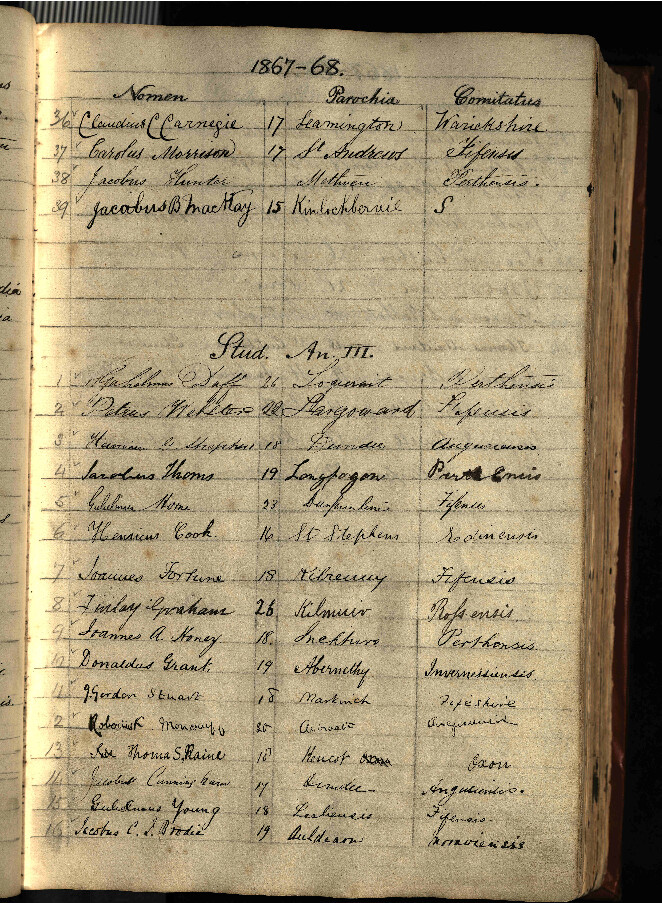 1867-68.
Nomen Parochia Comitatus
36 Claudius C Carnegie 17 Leamington Warickshire
37 Carolus Morrison 17 St Andrews Fifensis
38 Jacobus Hunter Methven Perthensis.
39 Jacobus B MacKay 15 Kinlochbervie S
Stud. An. III.
1 Duff 26 Logierait Perthensis
2 Petrus Webster 22 Largoward Fifensis
3 18 Dundee
4 Jacobus Thoms 19 Longforgan
5 Home 23 Fifensis
6 Henricus Cook 16 St Stephens Edinensis
7 Joannes Fortune 18 Kilrenny Fifensis
8 Finlay Graham 26 Kilmuir Rossensis
9 Joannes A. Honey 18. Inchture Perthensis.
10 Donaldus Grant. 19 Abernethy Invernessiensis
11 J Gordon Stuart 18 Markinch Fifeshire
12 20
13 Thomas S. Raine 18 Oxon
14 Jacobus Cunningham 17 Dundee Angusiensis.
15 Young 18 Fifensis
16 Jacobus C. J. Brodie 19 Auldearn Moraviensis